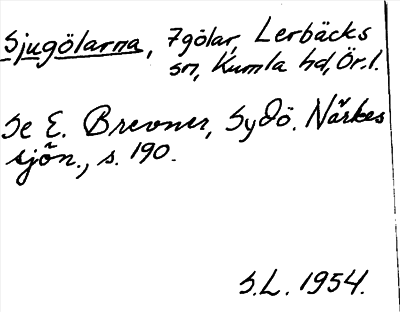 Sjugölarna, 7 gölar, Lerbäcks
sn, Kumla hd, Ör.l.
Se E. Brevner, Sydö. Närkes
sjön., s. 190.
S.L. 1954.